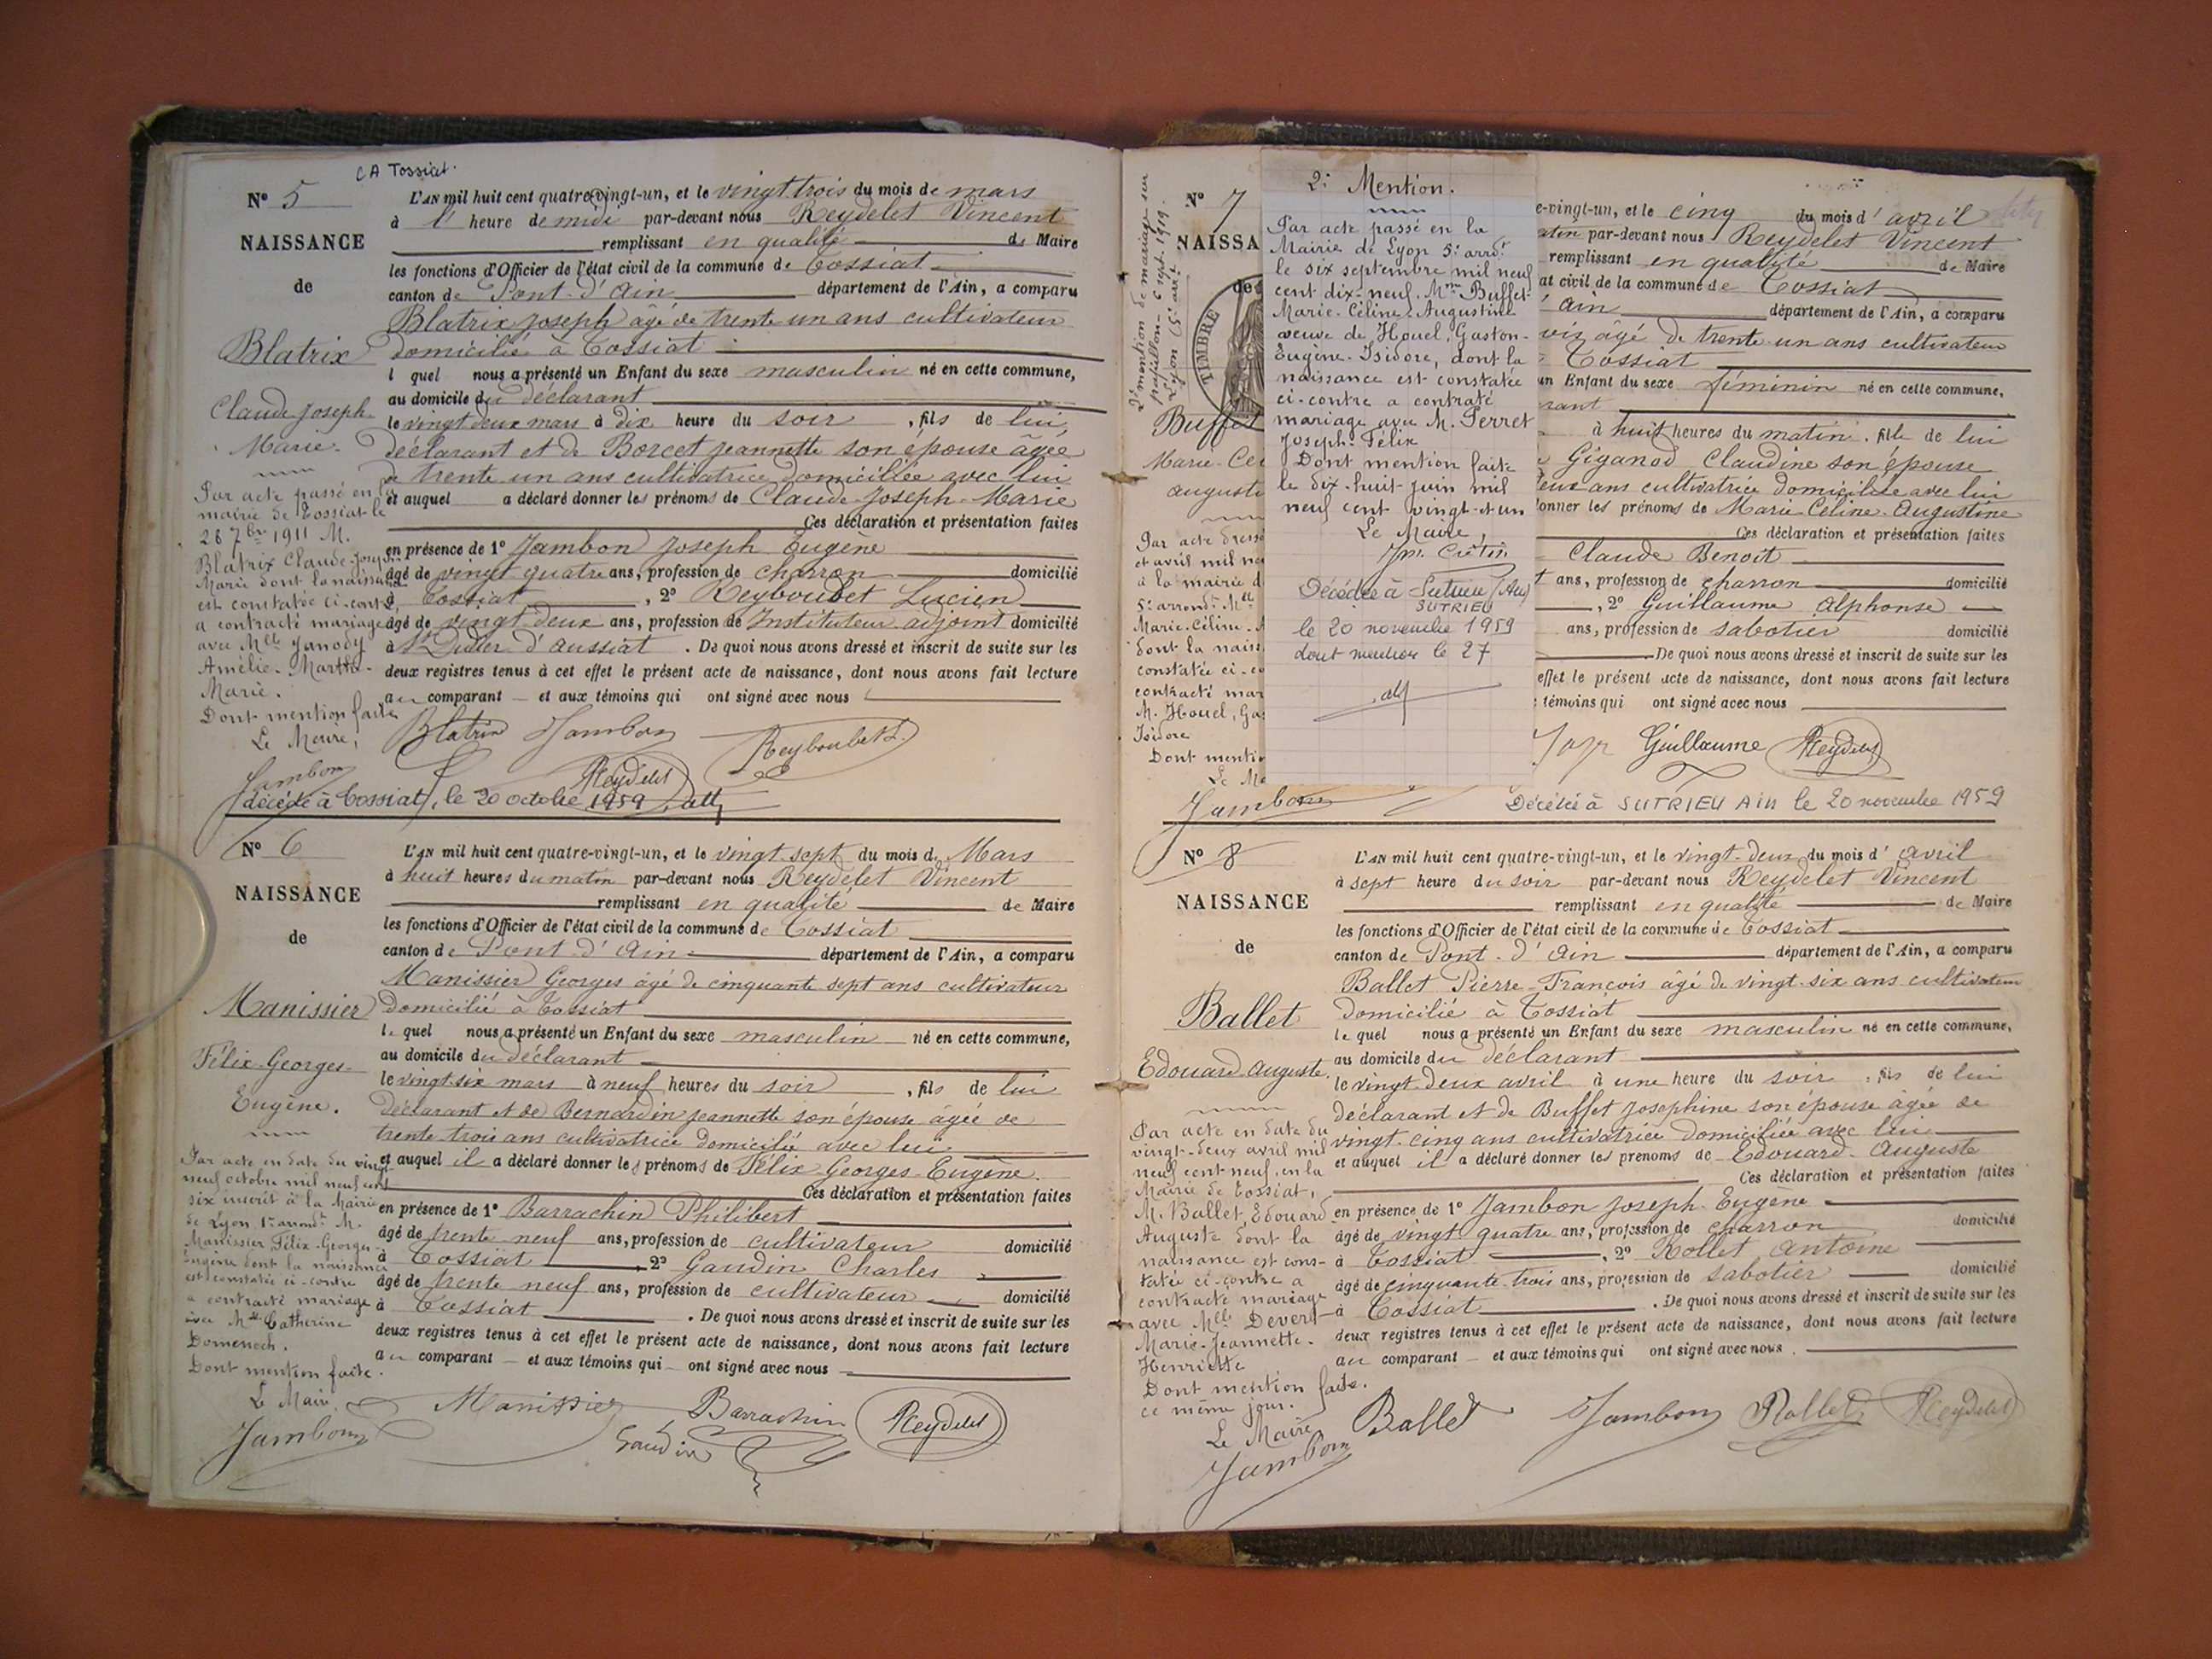 CA Tossiat.
N° 5
NAISSANCE
de
Blatrix
Claude Joseph
Marie.
Par acte passé en la
mairie de Tossiat le
28 7bre 1911 M.
Blatrix Claude-Joseph
Marie dont la naissance
est constatée ci-contre,
a contracté mariage
avec Melle Janody
Amélie-Marthe-
Marie.
Dont mention faite
Le Maire,
Jambon
L'AN mil huit cent quatre-vingt-un, et le vingt trois du mois de mars
à l' heure de midi par-devant nous Reydelet Vincent
remplissant en qualité de Maire
les fonctions d'Officier de l'état civil de la commune de Tossiat
canton de Pont-d'Ain département de l'Ain, a comparu
Blatrix Joseph âgé de trente un ans cultivateur
domicilié à Tossiat
l quel nous a présenté un Enfant du sexe masculin né en cette commune,
au domicile du déclarant
le vingt deux mars à dix heure du soir , fils de lui
déclarant et de Borcet Jeannette son épouse âgée
de trente un ans cultivatrice domiciliée avec lui
et auquel a déclaré donner les prénoms de Claude-Joseph-Marie
Ces déclaration et présentation faites
en présence de 1° Jambon Joseph Eugène
âgé de vingt quatre ans, profession de charron domicilié
à Tossiat , 2° Reyboubet Lucien
âgé de vingt-deux ans, profession de Instituteur adjoint domicilié
à St Didier d'Aussiat . De quoi nous avons dressé et inscrit de suite sur les
deux registres tenus à cet effet le présent acte de naissance, dont nous avons fait lecture
au comparant et aux témoins qui ont signé avec nous
Blatrix Jambon Reyboubet L.
Reydelet
décédé à Tossiat, le 20 octobre 1959
N° 6
NAISSANCE
de
Manissier
Félix-Georges-
Eugène.
Par acte en date du vingt
neuf octobre mil neuf cent
six inscrit à la Mairie
de Lyon 1er arrondt M.
Manissier Félix-Georges-
Eugène dont la naissance
est constatée ci-contre
a contracté mariage
avec Melle Catherine
Domenech.
Dont mention faite.
Le Maire.
Jambon
L'AN mil huit cent quatre-vingt-un, et le vingt-sept du mois de Mars
à huit heures du matin par-devant nous Reydelet Vincent
remplissant en qualité de Maire
les fonctions d'Officier de l'état civil de la commune de Tossiat
canton de Pont-d'Ain département de l'Ain, a comparu
Manissier Georges âgé de cinquante sept ans cultivateur
domicilié à Tossiat
le quel nous a présenté un Enfant du sexe masculin né en cette commune,
au domicile du déclarant
le vingt six mars à neuf heures du soir , fils de lui
déclarant et de Bernardin Jeannette son épouse âgée de
trente trois ans cultivatrice domicilié avec lui
et auquel il a déclaré donner les prénoms de Félix-Georges-Eugène.
Ces déclaration et présentation faites
en présence de 1° Barrachin Philibert
âgé de trente neuf ans, profession de cultivateur domicilié
à Tossiat 2° Gaudin Charles
âgé de trente neuf ans, profession de cultivateur domicilié
à Tossiat . De quoi nous avons dressé et inscrit de suite sur les
deux registres tenus à cet effet le présent acte de naissance, dont nous avons fait lecture
au comparant et aux témoins qui ont signé avec nous
Manissier Barrachin Reydelet
Gaudin
2e mention de mariage sur
papillon - 6 sept. 1919.
Lyon (5e arrt.
N° 7
NAISSA
de
TIMBRE
Buffet
Marie-Cé
August
Par acte dressé
et avril mil ne
à la mairie d
5e arrondt Melle
Marie-Céline-A
dont la naiss
constatée ci-co
contracté mar
M. Houel, Ga
Isidore
Dont mentio
Le Ma
Jambon
2e Mention.
Par acte passé en la
Mairie de Lyon 5e arrdt
le six septembre mil neuf
cent dix-neuf. Mme Buffet
Marie-Céline-Augustine
veuve de Houel, Gaston-
Eugène-Isidore, dont la
naissance est constatée
ci-contre a contracté
mariage avec M. Perret
Joseph-Félix
Dont mention faite
le dix-huit juin mil
neuf cent vingt-et-un
Le Maire,
Jph. Crétin
Décédée à Sutrieu (Ain)
SUTRIEU
le 20 novembre 1959
dont mention le 27
e-vingt-un, et le cinq du mois d' avril
atin par-devant nous Reydelet Vincent
remplissant en qualité de Maire
at civil de la commune de Tossiat
'Ain département de l'Ain, a comparu
vis âgé de trente-un ans cultivateur
Tossiat
un Enfant du sexe féminin né en cette commune,
rant
à huit heures du matin. fille de lui
Giganod Claudine son épouse
eux ans cultivatrice domiciliée avec lui
onner les prénoms de Marie Céline-Augustine
Ces déclaration et présentation faites
Claude Benoit
ans, profession de charron domicilié
, 2° Guillaume Alphonse
ans, profession de sabotier domicilié
De quoi nous avons dressé et inscrit de suite sur les
effet le présent acte de naissance, dont nous avons fait lecture
témoins qui ont signé avec nous
Guillaume Reydelet
Décédée à SUTRIEU Ain le 20 novembre 1959
N° 8
NAISSANCE
de
Ballet
Edouard Auguste.
Par acte en date du
vingt-deux avril mil
neuf cent neuf, en la
Mairie de Tossiat,
M. Ballet, Edouard
Auguste dont la
naissance est cons-
tatée ci-contre a
contracté mariage
avec Melle Devert
Marie-Jeannette-
Henriette
Dont mention faite.
ce même jour.
Le Maire
Jambon
L'AN mil huit cent quatre-vingt-un, et le vingt-deux du mois d' avril
à sept heure du soir par-devant nous Reydelet Vincent
remplissant en qualité de Maire
les fonctions d'Officier de l'état civil de la commune de Tossiat
canton de Pont-d'Ain département de l'Ain, a comparu
Ballet Pierre-François âgé de vingt-six ans cultivateur
domicilié à Tossiat
le quel nous a présenté un Enfant du sexe masculin né en cette commune,
au domicile du déclarant
le vingt-deux avril à une heure du soir , fils de lui
déclarant et de Buffet Josephine son épouse âgée de
vingt-cinq ans cultivatrice domiciliée avec lui
et auquel il a déclaré donner les prénoms de Edouard-Auguste
Ces déclaration et présentation faites
en présence de 1° Jambon Joseph-Eugène
âgé de vingt quatre ans, profession de charron domicilié
à Tossiat , 2° Rollet Antoine
âgé de cinquante-trois ans, profession de sabotier domicilié
à Tossiat . De quoi nous avons dressé et inscrit de suite sur les
deux registres tenus à cet effet le présent acte de naissance, dont nous avons fait lecture
au comparant et aux témoins qui ont signé avec nous.
Ballet Jambon Rollet Reydelet